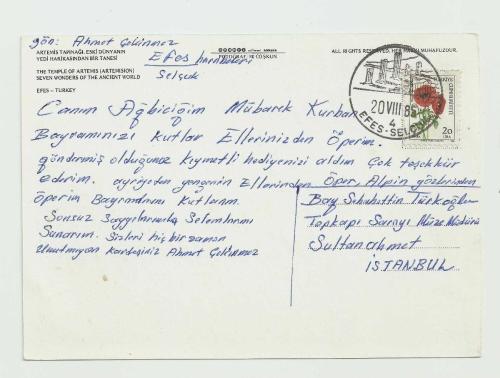 gön: Ahmet Çekinmez
Efes harabeleri
Selçuk
ARTEMİS TAPINAĞI, ESKİ DÜNYANIN
YEDİ HARİKASINDAN BİR TANESİ
THE TEMPLE OF ARTEMIS (ARTEMISION)
SEVEN WONDERS OF THE ANCIENT WORLD
EFES – TURKEY
ALL RIGHTS RESERVED. HER HAKKI MAHFUZDUR.
20 VIII 85
4
EFES-SELÇUK
TÜRKİYE CUMHURİYETİ
20
LİRA
Canım Ağbiciğim Mübarek Kurban
Bayramınızı kutlar Ellerinizden Öperim.
göndermiş olduğunuz kıymetli hediyenizi aldım Çok teşekkür
ederim. ayriyeten yengemin Ellerinden Öper, Alpin gözlerinden
Öperim Bayramlarını Kutlarım.
Sonsuz Saygılarımla Selamlarımı
Sunarım. Sizleri hiç bir zaman
Unutmıyan kardeşiniz Ahmet Çekinmez
Bay Sebahittin Türkoğlu
Topkapı Sarayı Müze Müdürü
Sultanahmet
İSTANBUL